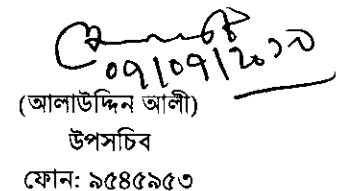 ০৭/০৭/২০১০
(আলাউদ্দিন আলী)
উপসচিব
ফোন: ৯৫৪৫৯৫৩